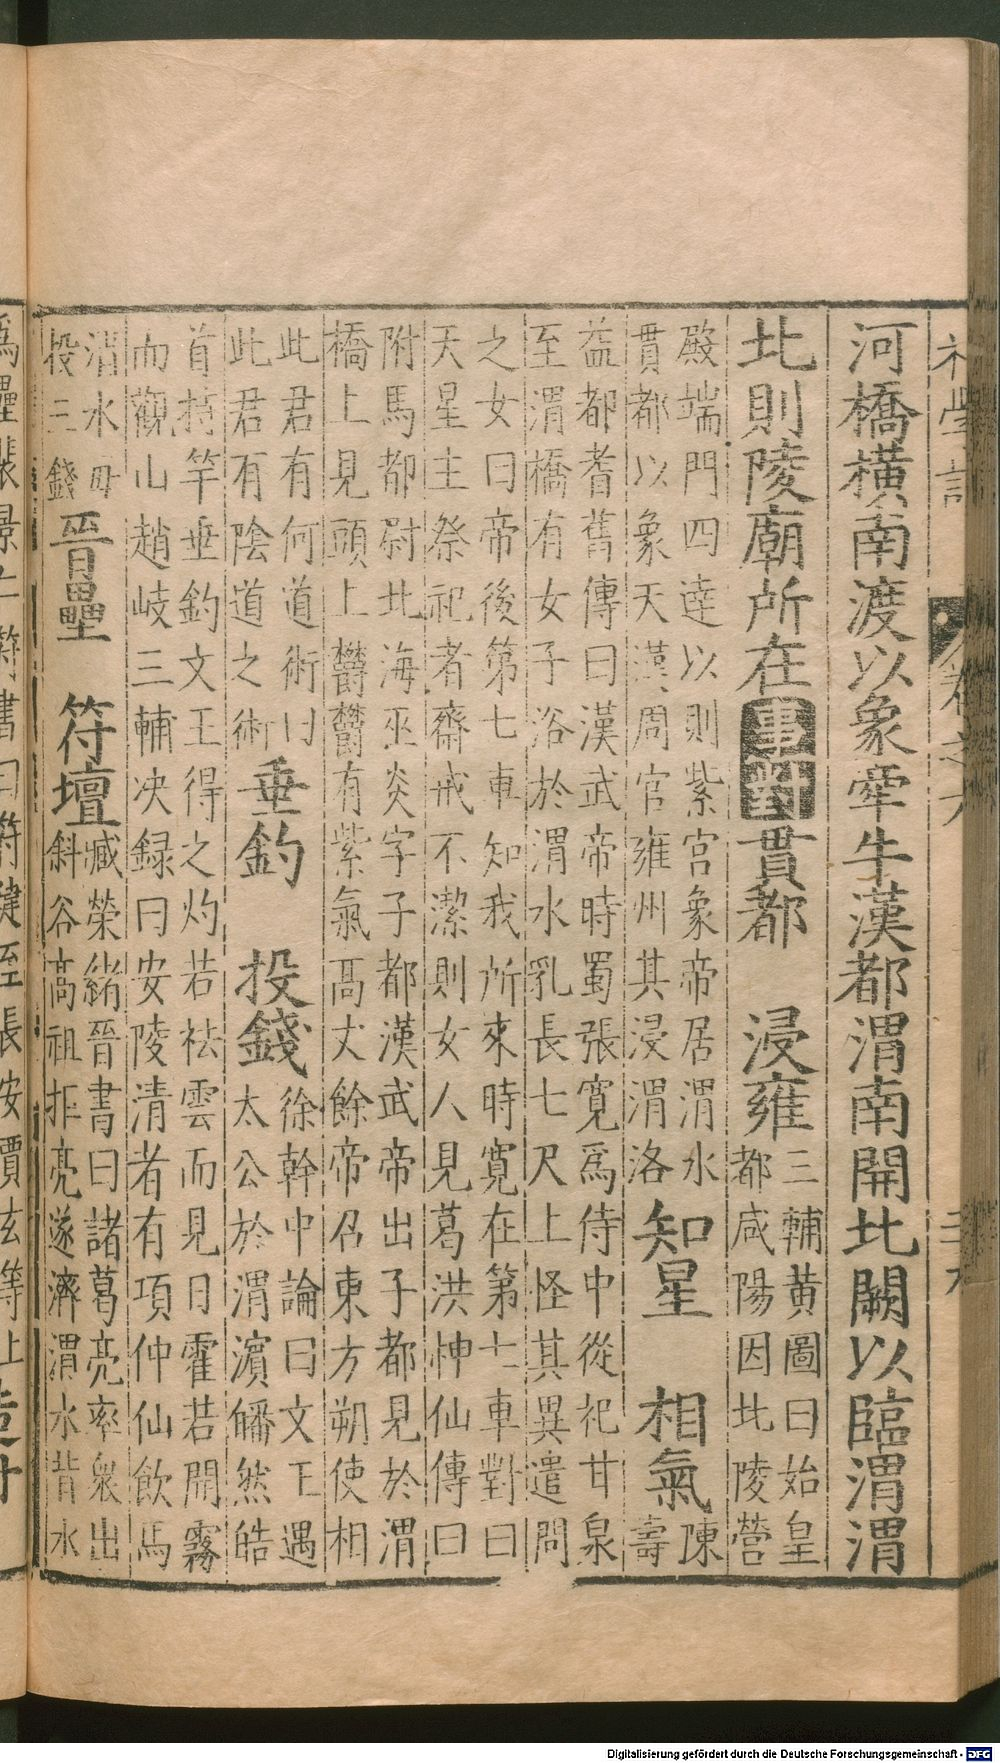 河橋橫南渡以象牽牛漢都渭南開北闕以臨渭渭
北則陵廟所在事對貫都 浸雍三輔黃圖曰始皇
都咸陽因北陵營
殿端門四達以則紫宮象帝居渭水
貫都以象天漢周官雍州其浸渭洛知星 相氣陳
壽
益都耆舊傳曰漢武帝時蜀張寬爲侍中從祀甘泉
至渭橋有女子浴於渭水乳長七尺上怪其異遣問
之女曰帝後第七車知我所來時寬在第七車對曰
天星主祭祀者齋戒不潔則女人見葛洪神仙傳曰
附馬都尉北海巫炎字子都漢武帝出子都見於渭
橋上見頭上欎欎有紫氣髙丈餘帝召東方朔使相
此君有何道術曰
此君有隂道之術垂釣 投錢徐幹中論曰文王遇
太公於渭濱皤然皓
首持竿垂釣文王得之灼若祛雲而見日霍若開霧
而觀山趙岐三輔决録曰安陵清者有項仲仙飲馬
渭水毎
投三錢晉壘 符壇臧榮緒晉書曰諸葛亮率衆出
斜谷高祖拒亮遂濟渭水背水
卷之六
三九
爲壘
符書曰符健至長安賈玄等上
Digitalisierung gefördert durch die Deutsche Forschungsgemeinschaft - DFG